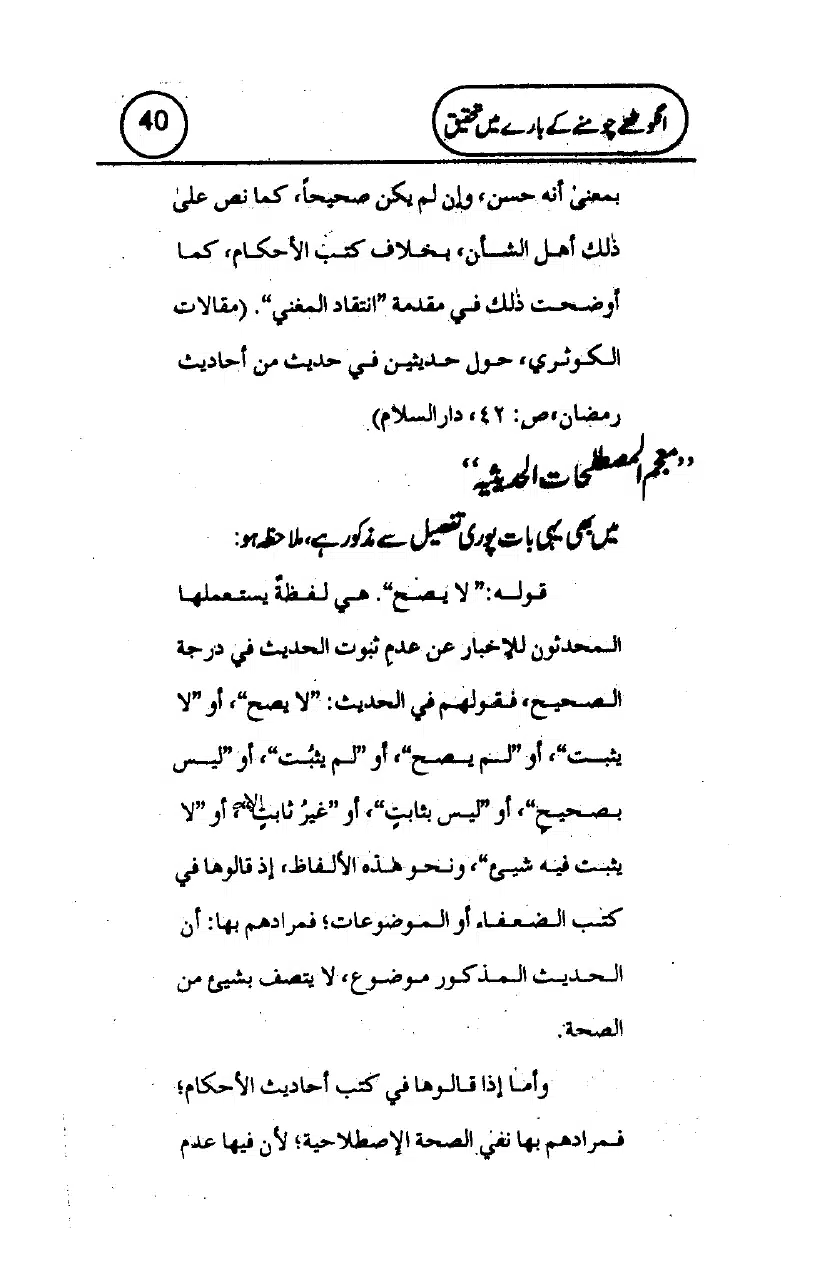 انگوٹھے چومنے کے بارے میں تحقیق
40
بمعنیٰ أنه حسن، وإن لم يكن صحيحاً، كما نص علىٰ
ذٰلك أهل الشأن، بخلاف كتب الأحكام، كما
أوضحت ذٰلك في مقدمة ”انتقاد المغني“. (مقالات
الكوثري، حول حديثين في حديث من أحاديث
رمضان،ص: ٤٢، دارالسلام)
”معجم المصطلحات الحديثيه“
میں بھی یہی بات پوری تفصیل سے مذکور ہے، ملاحظہ ہو:
قوله:”لا يصح“. هي لفظةٌ يستعملها
المحدثون للإخبار عن عدمِ ثبوت الحديث في درجة
الصحيح، فقولهم في الحديث: ”لا يصح“، أو ”لا
يثبت“، أو ”لم يصح“، أو ”لم يثبُت“، أو ”ليس
بصحيحٍ“، أو ”ليس بثابتٍ“، أو ”غيرُ ثابتٍ“، أو ”لا
يثبت فيه شيئ“، ونحو هذه الألفاظ، إذ قالوها في
كتب الضعفاء أو الموضوعات؛ فمرادهم بها: أن
الحديث المذكور موضوع، لا يتصف بشيئ من
الصحة.
وأما إذا قالوها في كتب أحاديث الأحكام؛
فمرادهم بها نفي الصحة الإصطلاحية؛ لأن فيها عدم